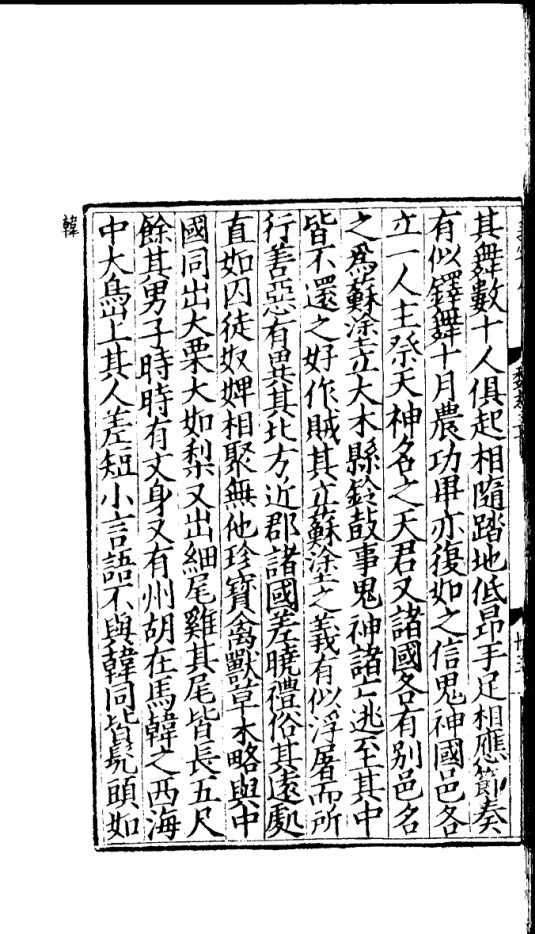 其舞數十人俱起相隨踏地低昂手足相應節奏
有似鐸舞十月農功畢亦復如之信鬼神國邑各
立一人主祭天神名之天君又諸國各有別邑名
之爲蘇塗立大木縣鈴鼓事鬼神諸亡逃至其中
皆不還之好作賊其立蘇塗之義有似浮屠而所
行善惡有異其北方近郡諸國差曉禮俗其遠處
直如囚徒奴婢相聚無他珍寶禽獸草木略與中
國同出大栗大如梨又出細尾雞其尾皆長五尺
餘其男子時時有文身又有州胡在馬韓之西海
中大島上其人差短小言語不與韓同皆髡頭如
韓